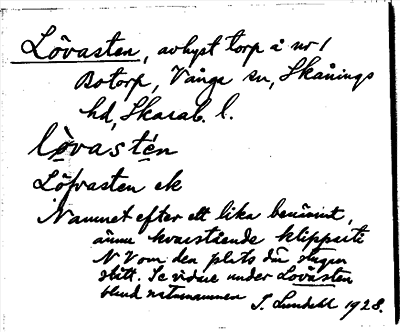 Lövasten, avhyst torp å nr 1
Botorp, Vånga sn, Skånings
hd, Skarab. l.
lòvastén
Löfvasten ek
Namnet efter ett lika benämnt,
ännu kvarstående klippparti
NV om den plats där stugan
stått. Se vidare under Lovasten
bland naturnamnen S. Lundahl 1928.